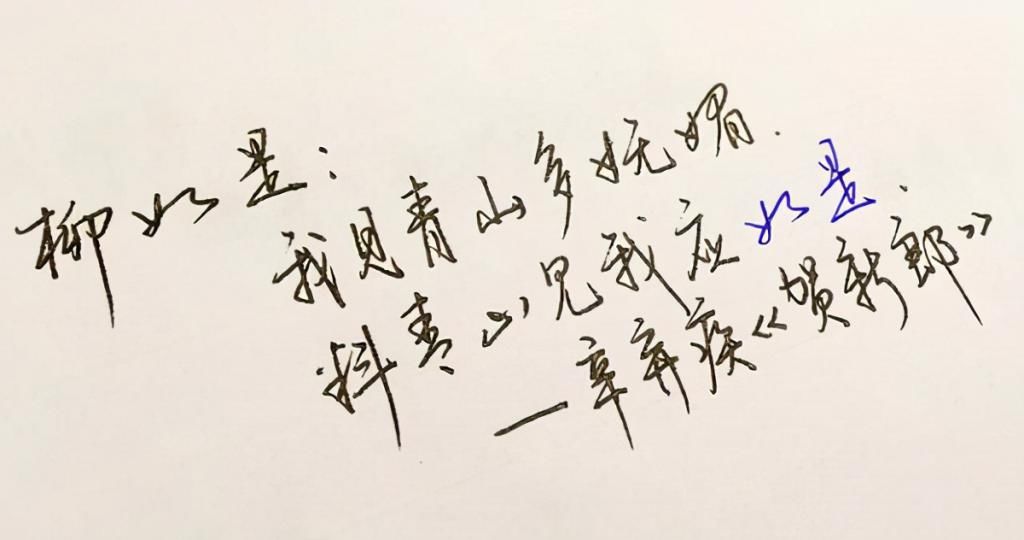 柳如是：
我见青山多妩媚.
料青山见我应如是.
—辛弃疾《贺新郎》